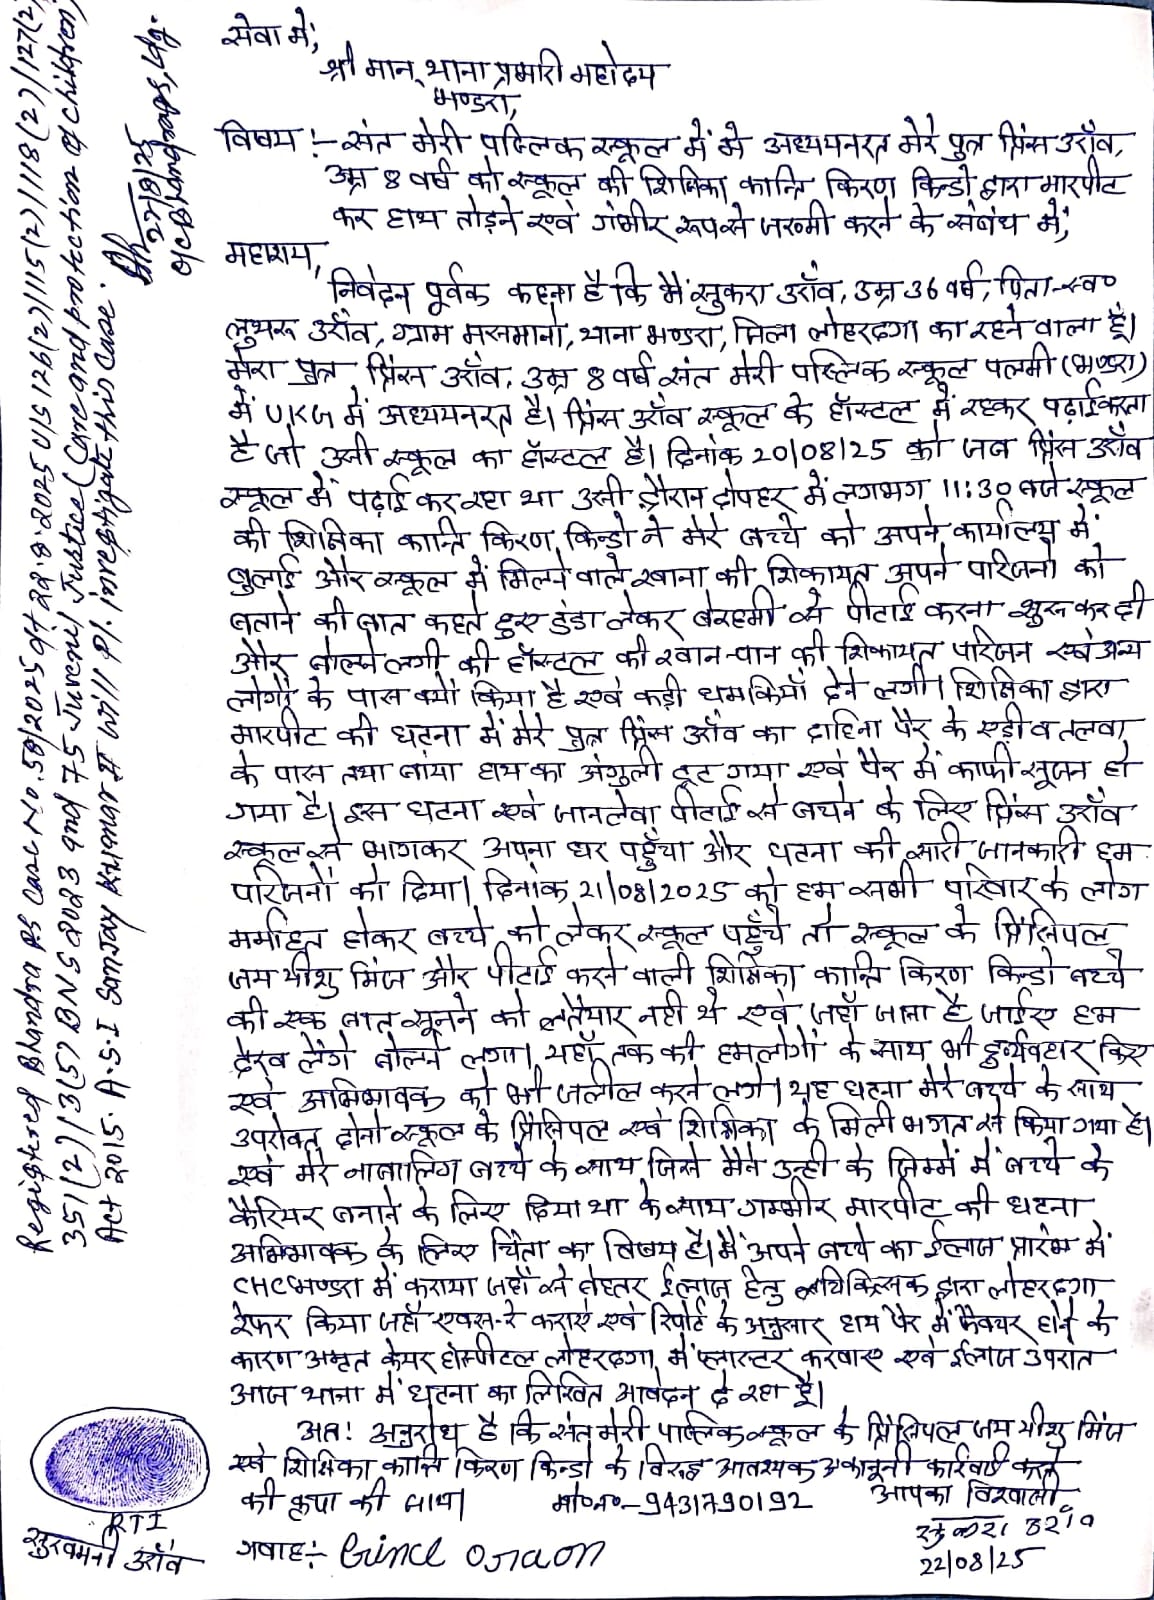 सेवा में,
श्रीमान् थाना प्रभारी महोदय
भण्डरा,
विषय :- संत मेरी पब्लिक स्कूल में मे अध्ययनरत मेरे पुत्र प्रिंस उराँव,
उम्र 8 वर्ष को स्कूल की शिक्षिका कान्ति किरण किन्डो द्वारा मारपीट
कर हाथ तोड़ने एवं गंभीर रूपसे जख्मी करने के संबंध में,
महाशय,
निवेदन पूर्वक कहना है कि मैं सुकरा उराँव, उम्र 36 वर्ष, पिता-स्व०
उराँव, ग्राम मसमानो, थाना भण्डरा, जिला लोहरदगा का रहने वाला हूँ।
मेरा पुत्र प्रिंस उराँव, उम्र 8 वर्ष संत मेरी पब्लिक स्कूल पलमी (भण्डरा)
में UKG में अध्ययनरत है। प्रिंस उराँव स्कूल के हॉस्टल में रहकर पढ़ाई करता
है जो उसी स्कूल का हॉस्टल है। दिनांक 20/08/25 को जब प्रिंस उराँव
स्कूल में पढ़ाई कर रहा था उसी दौरान दोपहर में लगभग 11:30 बजे स्कूल
की शिक्षिका कान्ति किरण किन्डो ने मेरे बच्चे को अपने कार्यालय में
बुलाई और स्कूल में मिलने वाले खाना की शिकायत अपने परिजनो को
बताने की बात कहते हुए डंडा लेकर बेरहमी से पीटाई करना शुरू कर दी
और बोलने लगी की हॉस्टल की खान-पान की शिकायत परिजन एवं अन्य
लोगों के पास क्यों किया है एवं कड़ी धमकियाँ देने लगी। शिक्षिका द्वारा
मारपीट की घटना में मेरे पुत्र प्रिंस उराँव का दाहिना पैर के एड़ी व तलवा
के पास तथा बांया हाथ का अंगुली टूट गया एवं पैर में काफी सूजन हो
गया है। इस घटना एवं जानलेवा पीटाई से बचने के लिए प्रिंस उराँव
स्कूल से भागकर अपना घर पहुँचा और घटना की सारी जानकारी हम
परिजनों को दिया। दिनांक 21/08/2025 को हम सभी परिवार के लोग
मर्माहत होकर बच्चे को लेकर स्कूल पहुँचे तो स्कूल के प्रिंसिपल
जय यीशु मिंज और पीटाई करने वाली शिक्षिका कान्ति किरण किन्डो बच्चे
की एक बात सूनने को तैयार नही थे एवं जहाँ जाना है जाईए हम
देख लेंगे बोलने लगा। यहाँ तक की हमलोगों के साथ भी दुर्व्यवहार किए
एवं अभिभावक को भी जलील करने लगे। यह घटना मेरे बच्चे के साथ
उपरोक्त दोनो स्कूल के प्रिंसिपल एवं शिक्षिका के मिली भगत से किया गया है।
एवं मेरे नाबालिग बच्चे के साथ जिसे मैने उन्ही के जिम्में में बच्चे के
कैरियर बनाने के लिए दिया था के साथ गम्भीर मारपीट की घटना
अभिभावक के लिए चिंता का विषय है। मैं अपने बच्चे का ईलाज प्रारंभ में
CHC भण्डरा में कराया जहाँ से बेहतर ईलाज हेतु चिकित्सक द्वारा लोहरदगा
रेफर किया जहाँ एक्स-रे कराऐ एवं रिपोर्ट के अनुसार हाथ पैर में फ्रैक्चर होने के
कारण अमृत केयर होस्पीटल लोहरदगा में प्लास्टर करवाए एवं ईलाज उपरांत
आज थाना में घटना का लिखित आवेदन दे रहा हूँ।
अत: अनुरोध है कि संत मेरी पब्लिक स्कूल के प्रिंसिपल जय यीशु मिंज
एवं शिक्षिका कान्ति किरण किन्डो के विरुद्ध आवश्यक कानूनी कार्रवाई करने
की कृपा की जाय।
मो०न०-9431790192
आपका विश्वासी
सुकरा उराँव
22/08/25
गवाह:- Prince Oraon
RTI
सुखमनी उराँव
Registered Bhandra P.S Case No. 58/2025 dt 22.8.2025 U/S 126(2)/115(2)/118(2)/127(2)/
351(2)/3(5) BNS 2023 and 75 Juvenil Justice (Care and protection of children)
Act 2015. A.S.I Sanjay Kumar will Pl. investigate this case.
27/8/25
O/C Bhandra P.S, Ldg.